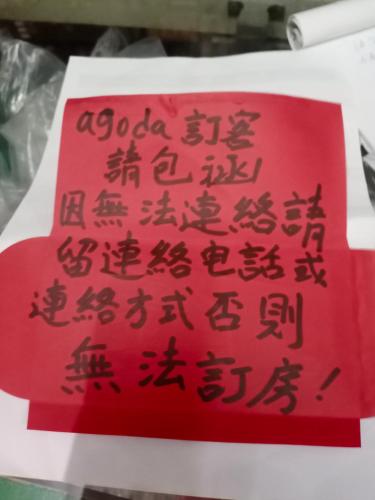 agoda訂客
請包涵
因無法連絡請
留連絡电話或
連絡方式否則
無法訂房！